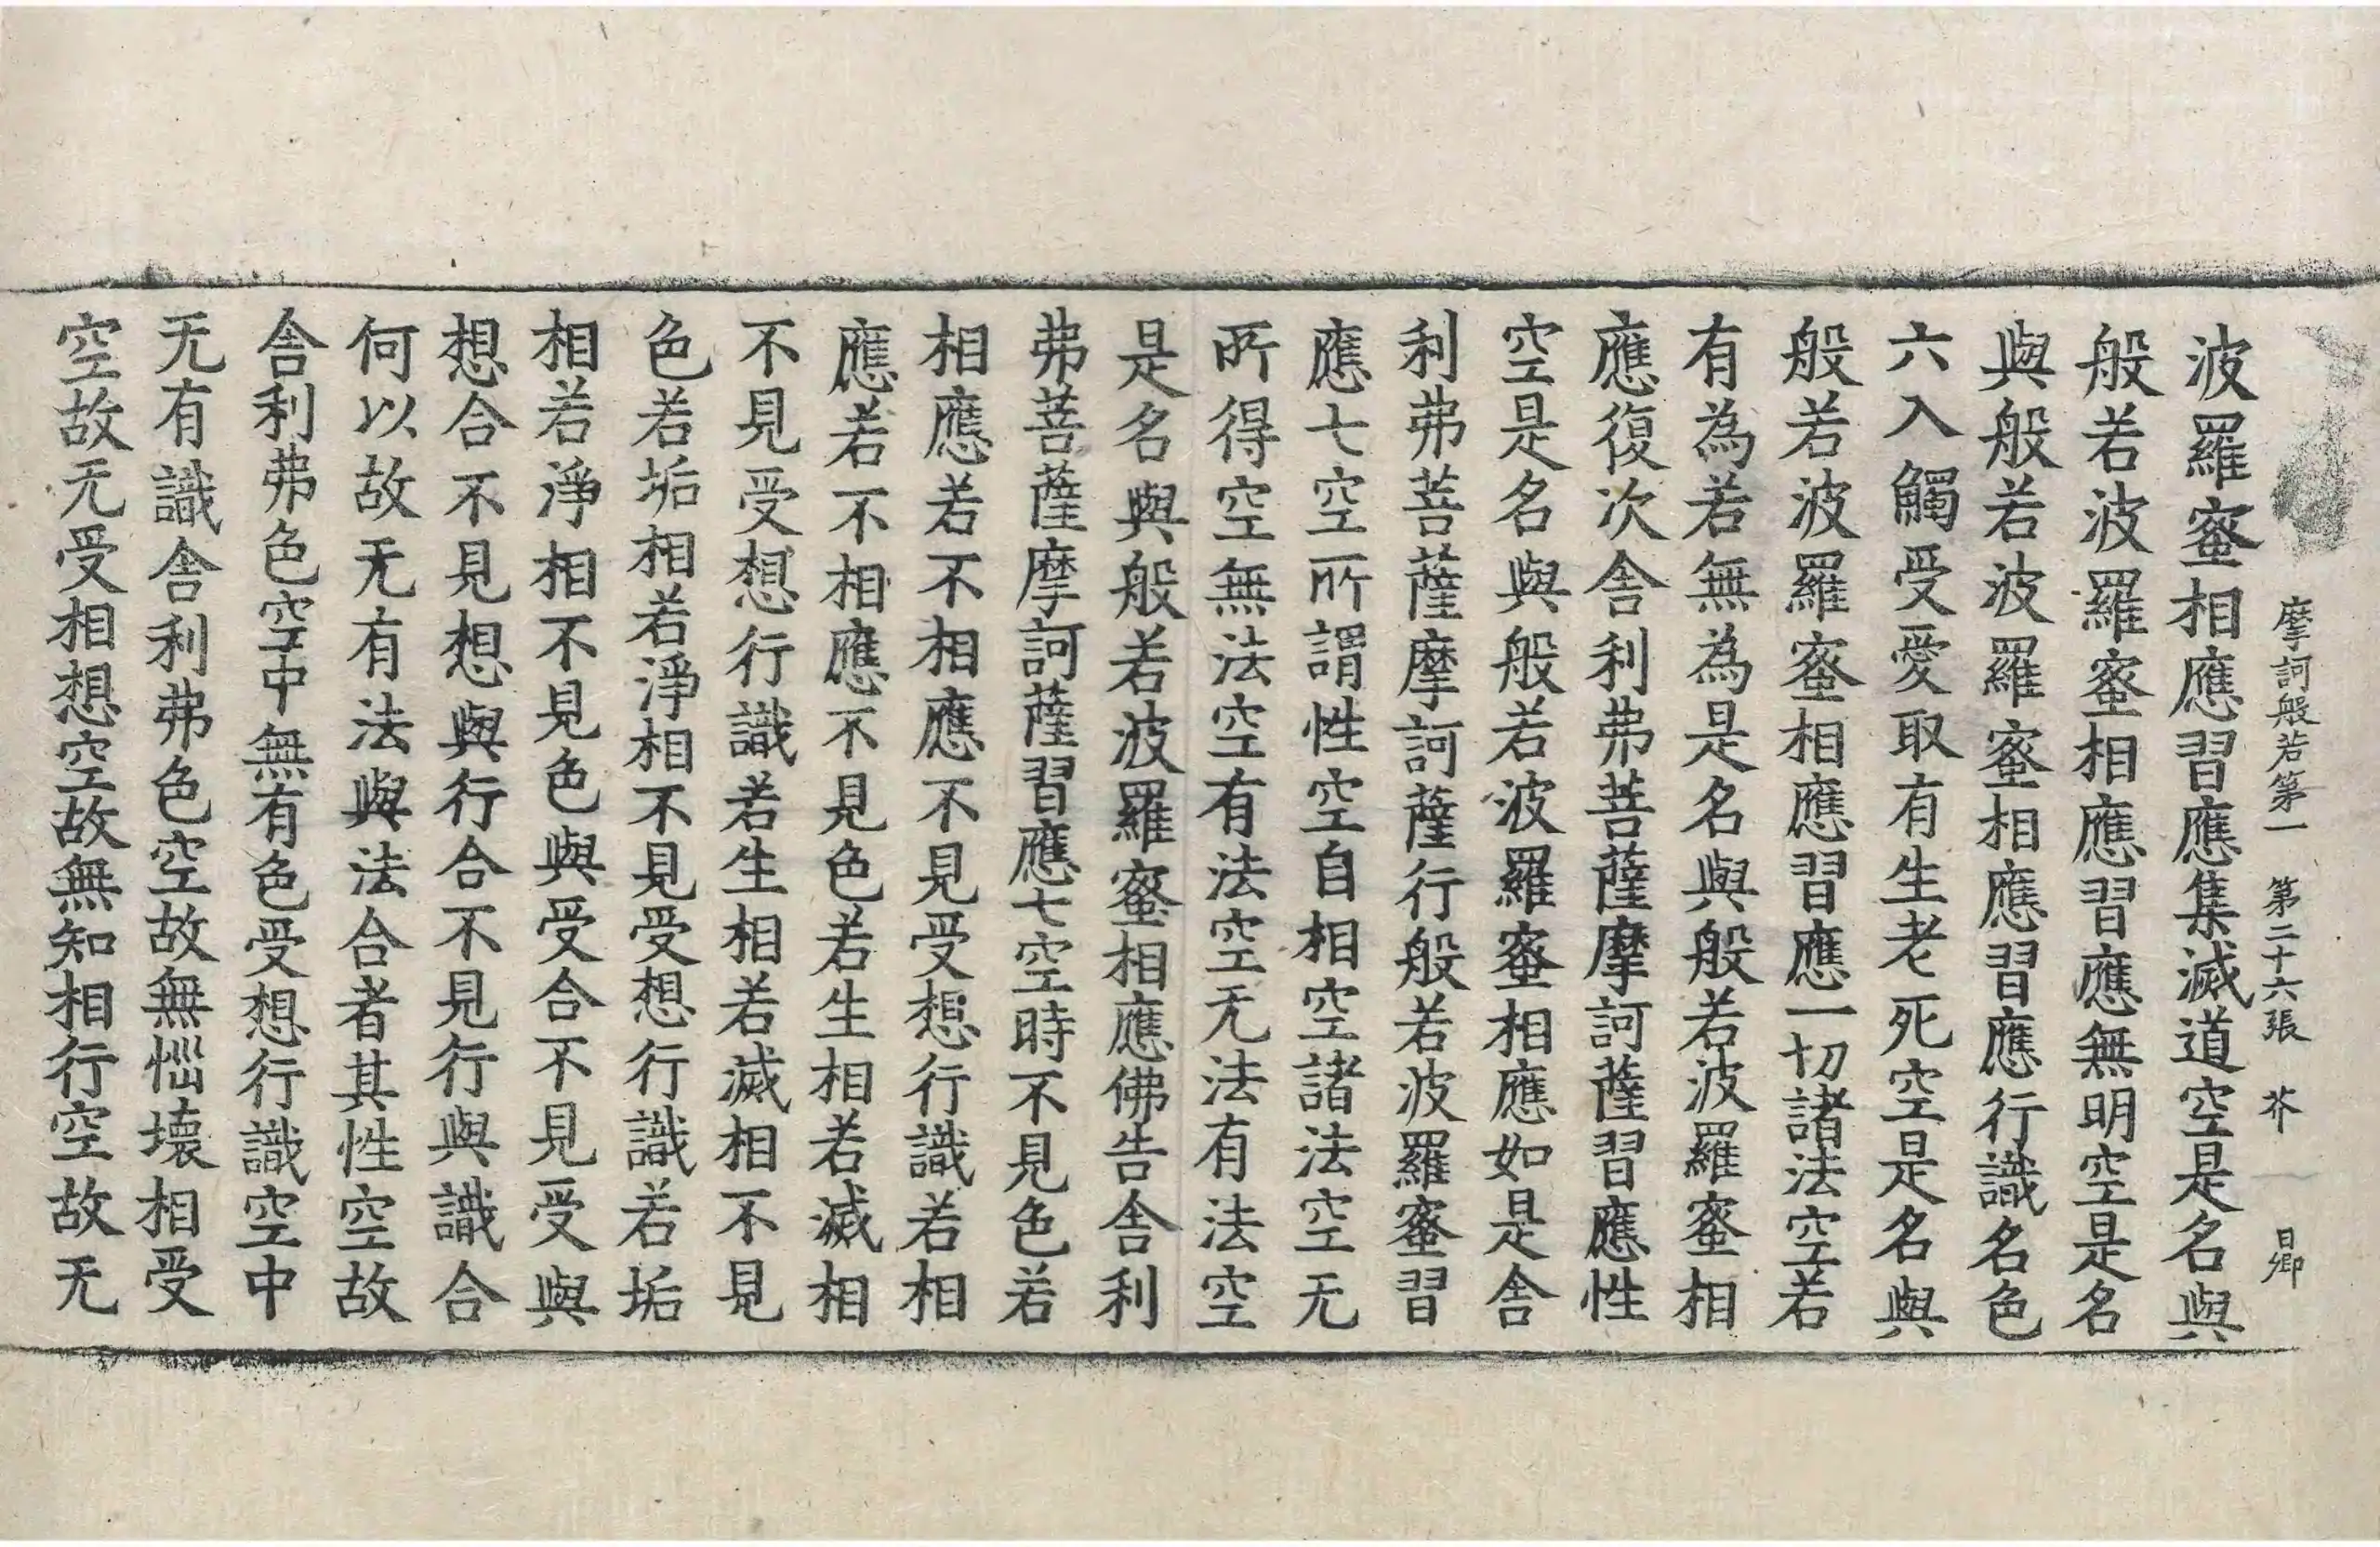 摩訶般若第一 第二十六張 芥 日卿
波羅蜜相應習應集滅道空是名與
般若波羅蜜相應習應無明空是名
與般若波羅蜜相應習應行識名色
六入觸受愛取有生老死空是名與
般若波羅蜜相應習應一切諸法空若
有為若無為是名與般若波羅蜜相
應復次舍利弗菩薩摩訶薩習應性
空是名與般若波羅蜜相應如是舍
利弗菩薩摩訶薩行般若波羅蜜習
應七空所謂性空自相空諸法空无
所得空無法空有法空无法有法空
是名與般若波羅蜜相應佛告舍利
弗菩薩摩訶薩習應七空時不見色若
相應若不相應不見受想行識若相
應若不相應不見色若生相若滅相
不見受想行識若生相若滅相不見
色若垢相若淨相不見受想行識若垢
相若淨相不見色與受合不見受與
想合不見想與行合不見行與識合
何以故无有法與法合者其性空故
舍利弗色空中無有色受想行識空中
无有識舍利弗色空故無惱壞相受
空故无受相想空故無知相行空故无